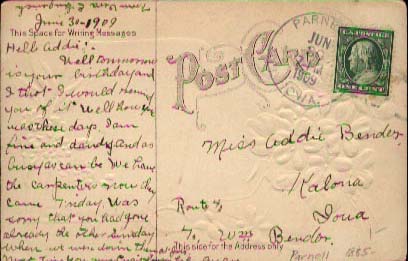 June 30-1909
This Space for Writing Messages
Hello Addie:-
Well tomorrow
is your birthday and
I that I would remind
you of it. Well how
are these days. I am
fine and dandy and as
busy as can be. We have
the carpenters now they
came Friday. Was
sorry that you had gone
already the other Sunday
when we were down
POST CARD
PARNE
JUN
1909
IOWA
U.S. POSTAGE
ONE CENT
Miss Addie Bender
Kalona
Route 8, Iowa
c/o Wm Bender.
This side for the Address only
Parnell 1885-